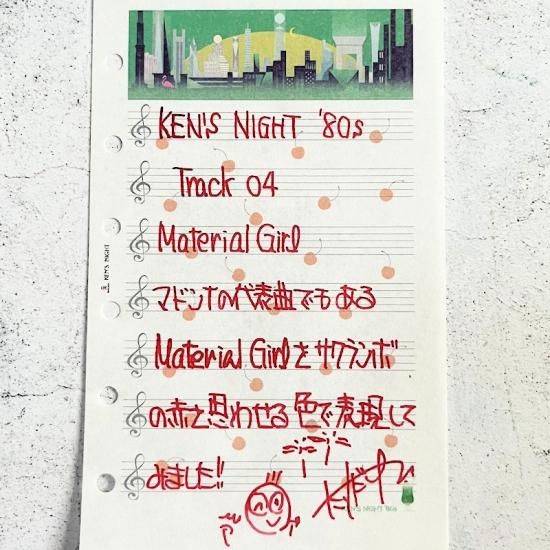 KEN'S NIGHT '80s
Track 04
Material Girl
マドンナの代表曲でもある
Material Girlをサクランボ
の赤を思わせる色で表現して
みました!!
KEN'S NIGHT
KEN'S NIGHT '80s